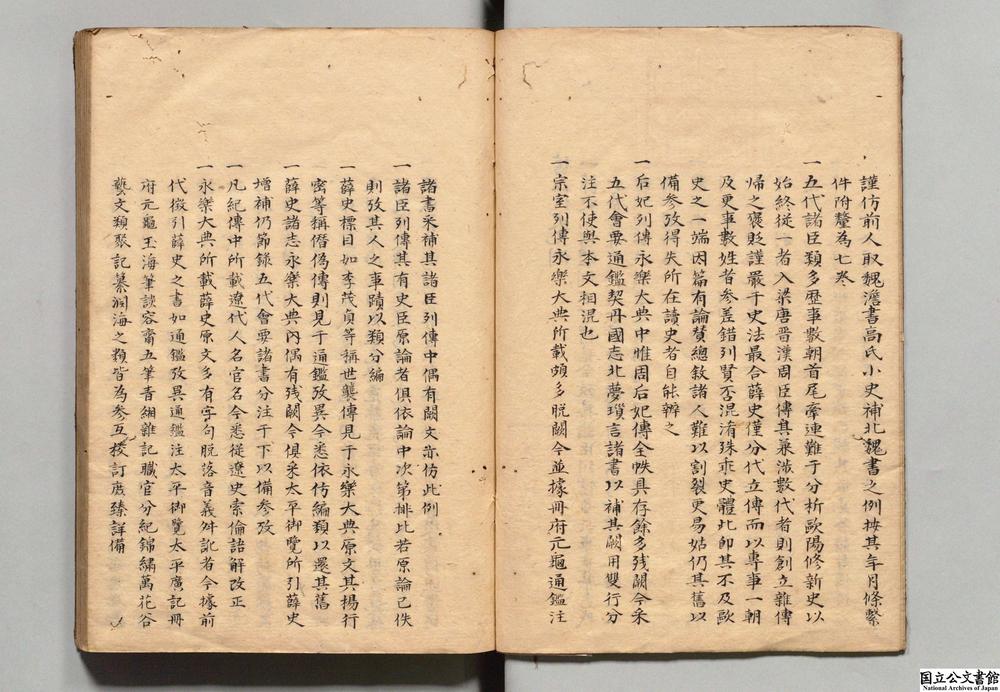 謹仿前人取魏澹書高氏小史補北魏書之例按其年月條繫
件附釐為七卷
一五代諸臣類多歷事數朝首尾牽連難于分析歐陽修新史以
始終從一者入梁唐晋漢周臣傳其兼涉數代者則創立雜傳
歸之褒貶謹嚴于史法最合薛史僅分代立傳而以專事一朝
及更事數姓者參差錯列賢否混淆珠乖史體此即其不及歐
史之一端因篇有論賛總敘諸人難以割裂更易姑仍其舊以
備參攷得失所在讀史者自能辨之
一后妃列傳永樂大典中惟周后妃傳全帙具存餘多殘闕今采
五代會要通鑑契丹國志北夢瑣言諸書以補其闕用雙行分
注不使與本文相混也
一宗室列傳永樂大典所載頗多脱闕今並據冊府元龜通鑑注
諸書采補其諸臣列傳中偶有闕文亦仿此例
一諸臣列傳其有史臣原論者俱依論中次第排比若原論已佚
則攷其人之事蹟以類分編
一薛史標目如李茂貞等稱世襲傳見于永樂大典原文其揚行
密等稱僭偽傳則見于通鑑攷異今悉依仿編類以還其舊
一薛史諸志永樂大典內偶有残闕今俱采太平御覽所引薛史
增補仍節錄五代會要諸書分注于下以備參攷
一凡紀傳中所載遼代人名官名今悉從遼史索倫語解改正
一永樂大典所載薛史原文多有字句脱落音義舛訛者今據前
代徴引薛史之書如通鑑攷異通鑑注太平御覽太平廣記冊
府元龜玉海筆談容齋五筆青緗雜記職官分紀錦繡萬花谷
藝文類聚記纂淵海之類皆為參互校訂庶臻詳備
国立公文書館
National Archives of Japan